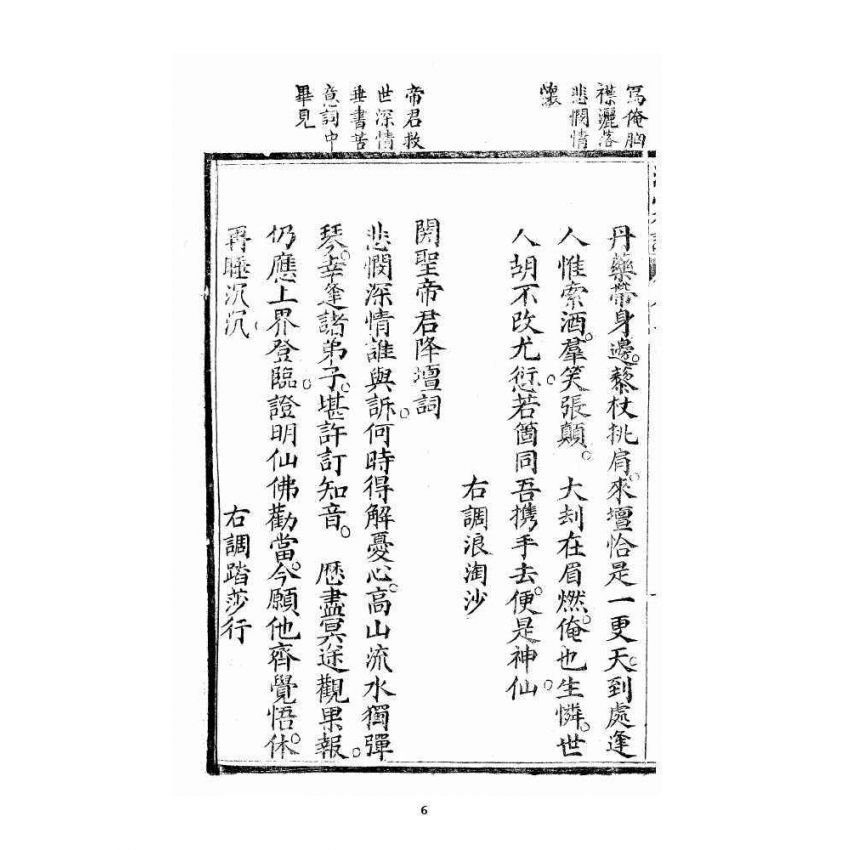 寫俺胸
襟灑落
悲憫情
懷
帝君救
世深情
垂書苦
意詞中
畢見
丹藥帶身邊。藜杖挑肩。來壇恰是一更天。到處逢
人惟索酒。羣笑張顛。 大刦在眉燃。俺也生憐。世
人胡不改尤愆。若箇同吾携手去。便是神仙。
右調浪淘沙
関聖帝君降壇詞
悲憫深情誰與訴。何時得解憂心。高山流水獨彈
琴。幸逢諸弟子。堪許訂知音。 歷盡冥途觀果報。
仍應上界登臨。證明仙佛勸當今。願他齊覺悟。休
再睡沉沉。
右調踏莎行
6